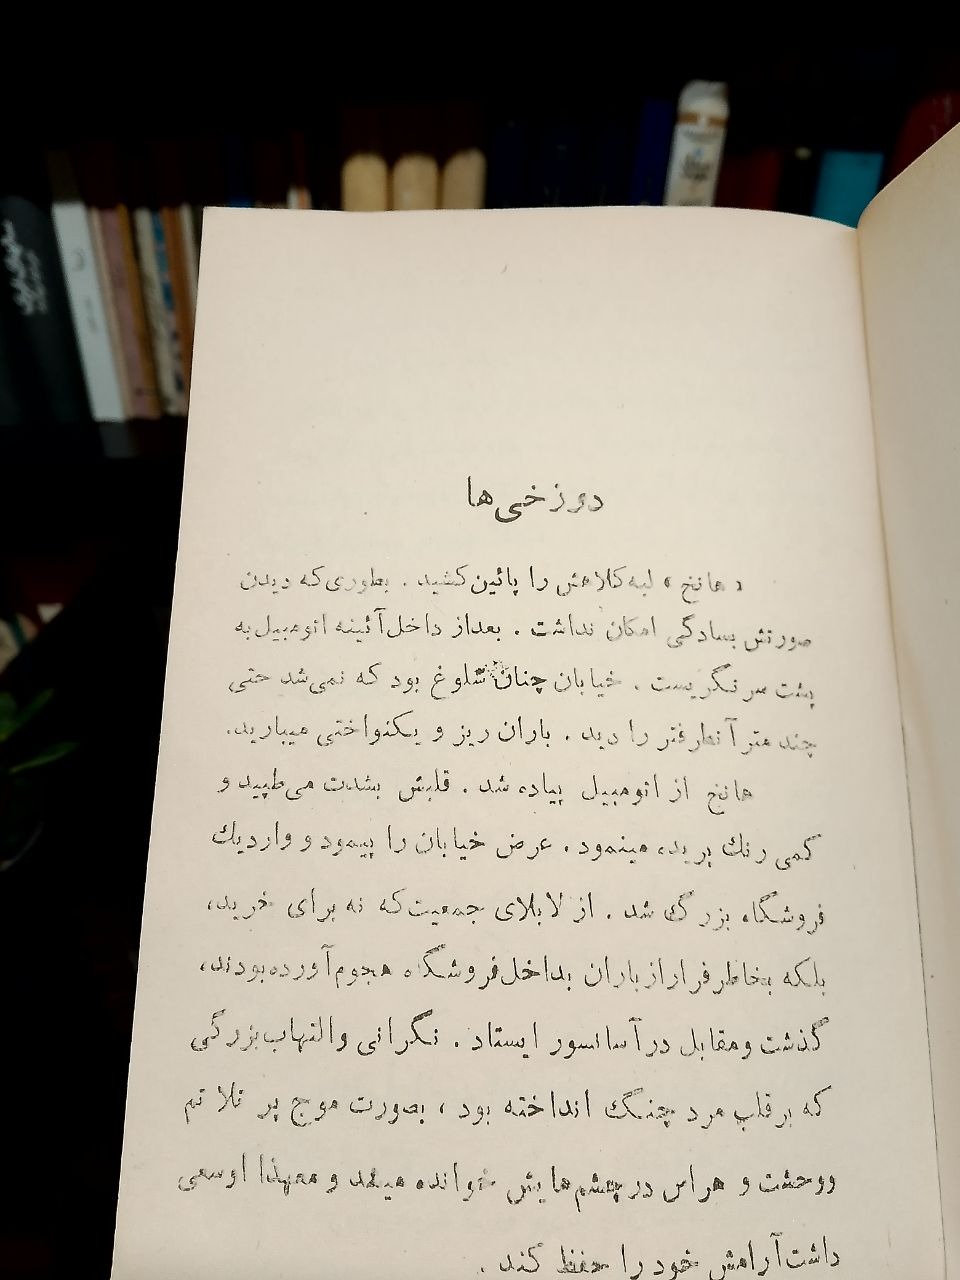 دوزخی‌ها
«هانخ» لبه کلاهش را پائین کشید . بطوری که دیدن
صورتش بسادگی امکان نداشت . بعد از داخل آئینه اتومبیل به
پشت سر نگریست . خیابان چنان شلوغ بود که نمی‌شد حتی
چند متر آنطرفتر را دید . باران ریز و یکنواختی میبارید.
هانخ از اتومبیل پیاده شد . قلبش بشدت می‌طپید و
کمی رنك پریده مینمود . عرض خیابان را پیمود و وارد یك
فروشگاه بزرگ شد . از لابلای جمعیت که نه برای خرید،
بلکه بخاطر فرار از باران بداخل فروشگاه هجوم آورده بودند،
گذشت و مقابل در آسانسور ایستاد . نگرانی و التهاب بزرگی
که بر قلب مرد چنگ انداخته بود ، بصورت موج پر تلا تم
ووحشت و هراس در چشم‌هایش خوانده میشد و معهذا او سعی
داشت آرامش خود را حفظ کند .